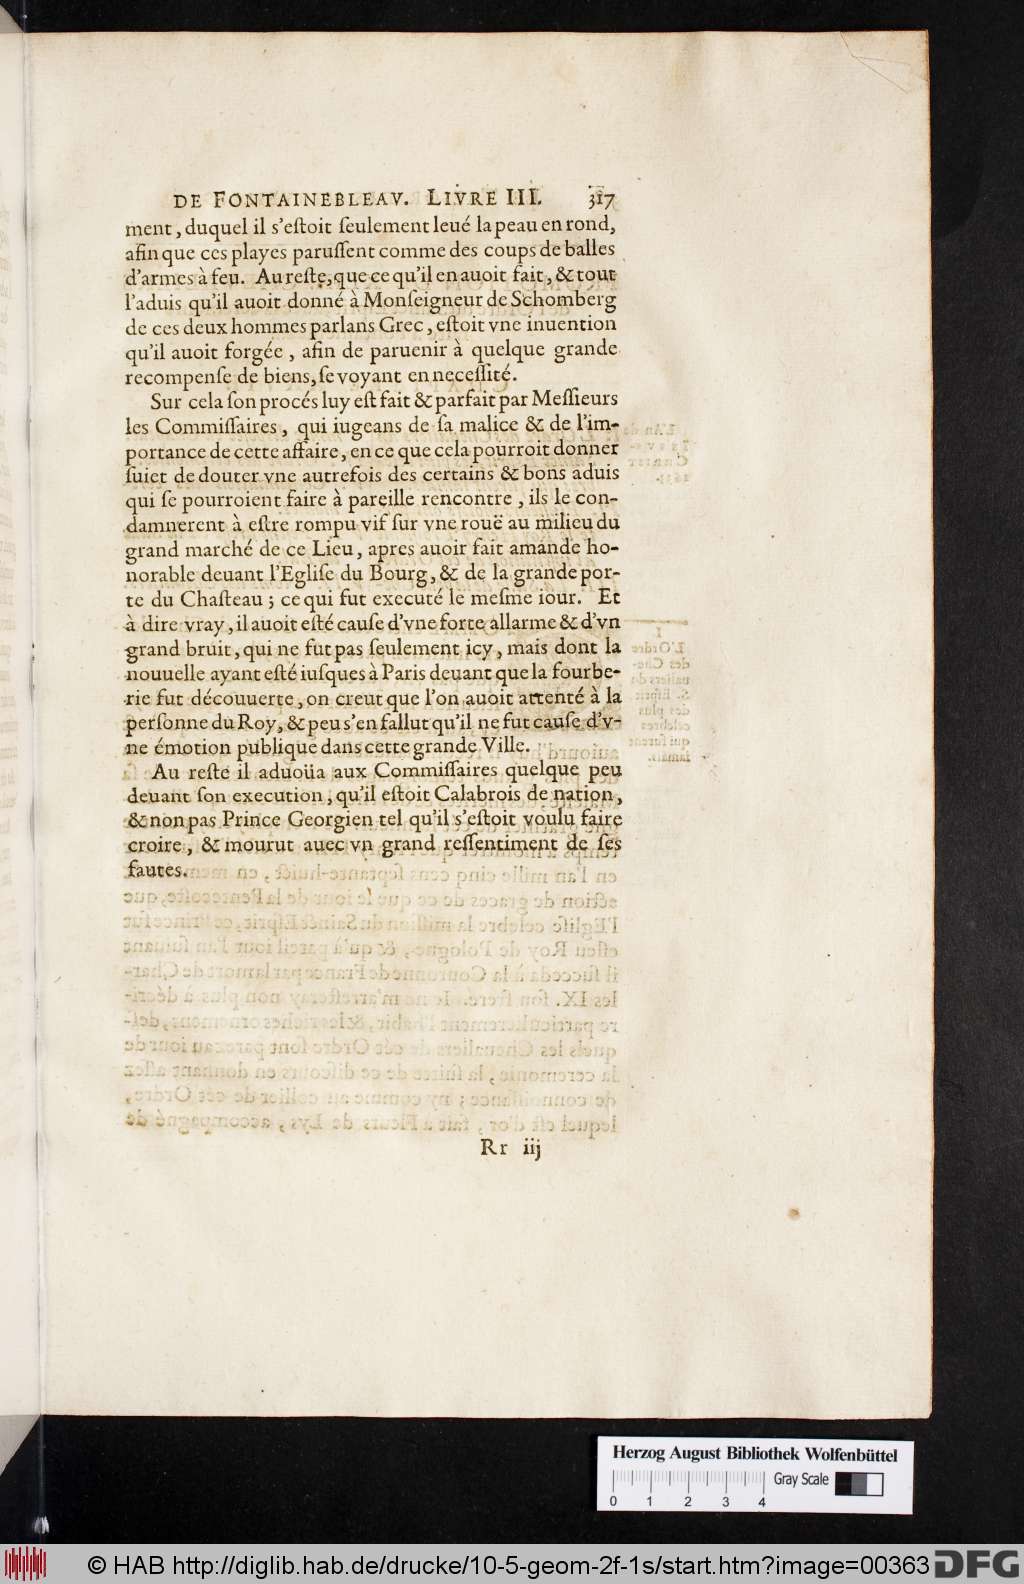 DE FONTAINEBLEAV. LIVRE III. 317
ment, duquel il s'eſtoit ſeulement leué la peau en rond,
afin que ces playes paruſſent comme des coups de balles
d'armes à feu. Au reſte, que ce qu'il en auoit fait, & tout
l'aduis qu'il auoit donné à Monſeigneur de Schomberg
de ces deux hommes parlans Grec, eſtoit vne inuention
qu'il auoit forgée, afin de paruenir à quelque grande
recompenſe de biens, ſe voyant en neceſſité.
Sur cela ſon procés luy eſt fait & parfait par Meſſieurs
les Commiſſaires, qui iugeans de ſa malice & de l'im-
portance de cette affaire, en ce que cela pourroit donner
ſuiet de douter vne autrefois des certains & bons aduis
qui ſe pourroient faire à pareille rencontre, ils le con-
damnerent à eſtre rompu vif ſur vne rouë au milieu du
grand marché de ce Lieu, apres auoir fait amande ho-
norable deuant l'Egliſe du Bourg, & de la grande por-
te du Chaſteau; ce qui fut executé le meſme iour. Et
à dire vray, il auoit eſté cauſe d'vne forte allarme & d'vn
grand bruit, qui ne fut pas ſeulement icy, mais dont la
nouuelle ayant eſté iuſques à Paris deuant que la fourbe-
rie fut découuerte, on creut que l'on auoit attenté à la
perſonne du Roy, & peu s'en fallut qu'il ne fut cauſe d'v-
ne émotion publique dans cette grande Ville.
Au reſte il aduoüa aux Commiſſaires quelque peu
deuant ſon execution, qu'il eſtoit Calabrois de nation,
& non pas Prince Georgien tel qu'il s'eſtoit voulu faire
croire, & mourut auec vn grand reſſentiment de ſes
fautes.
Rr iij
Herzog August Bibliothek Wolfenbüttel
Gray Scale
0 1 2 3 4
© HAB http://diglib.hab.de/drucke/10-5-geom-2f-1s/start.htm?image=00363
DFG